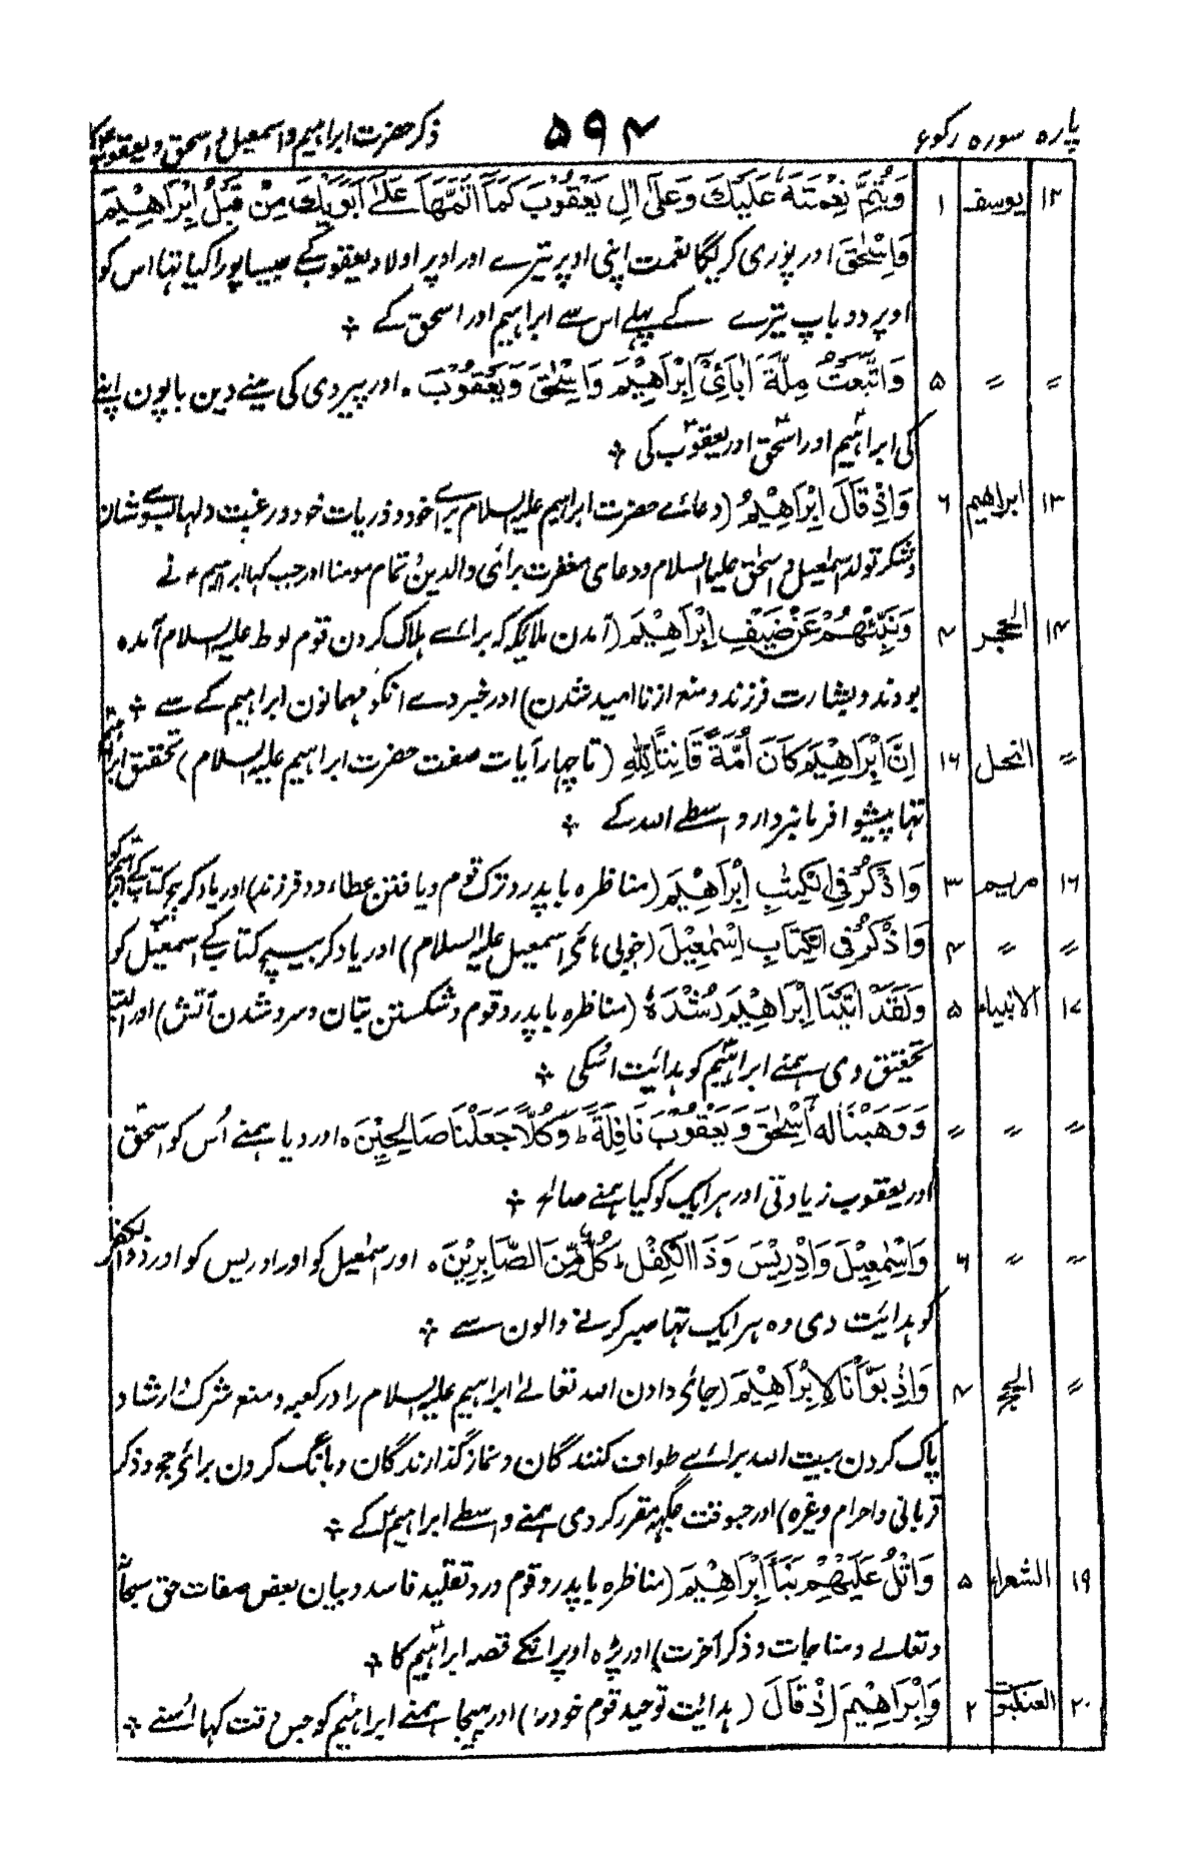 پارہ سورہ رکوع ۵۹۴ ذکر حضرت ابراہیم و اسمعیل و اسحق و یعقوب
۱۲ یوسف ۱ وَيُتِمُّ نِعْمَتَهٗ عَلَيْكَ وَعَلٰٓى اٰلِ يَعْقُوْبَ كَمَآ اَتَمَّهَا عَلٰٓى اَبَوَيْكَ مِنْ قَبْلُ اِبْرٰهِيْمَ
وَاِسْحٰقَ اور پوری کریگا نعمت اپنی اوپر تیرے اور اوپر اولاد یعقوب کے جیسا پورا کیا تہا اس کو
اوپر دو باپ تیرے کے پہلے اس سے ابراہیم اور اسحق کے ؞
〃 〃 ۵ وَاتَّبَعْتُ مِلَّةَ اٰبَآئِيْٓ اِبْرَاهِيْمَ وَاِسْحٰقَ وَيَعْقُوْبَ ۰ اور پیروی کی مینے دین باپون اپنے
کی ابراہیم اور اسحٰق اور یعقوب کی ؞
۱۳ ابراهيم ۶ وَاِذْ قَالَ اِبْرَاهِيْمُ (دعائے حضرت ابراہیم علیہ السلام برائے خود و ذریات خود و رغبت دلہا بسوئے شان
و شکر تولد اسمٰعیل و اسحٰق علیہما السلام و دعای مغفرت برائی والدین و تمام مومنان اور جب کہا ابراہیم نے
۱۴ الحجر ۴ وَنَبِّئْهُمْ عَنْ ضَيْفِ اِبْرَاهِيْمَ (آمدن ملایکہ کہ برائے ہلاک کردن قوم لوط علیہ السلام آمدہ
بودند و بشارت فرزند و منع از ناامید شدن) اور خبر دے انکو مہمانون ابراہیم کے سے ؞
〃 النحل ۱۶ اِنَّ اِبْرَاهِيْمَ كَانَ اُمَّةً قَانِتًا لِّلّٰهِ (تا چہار آیات صفت حضرت ابراہیم علیہ السلام) تحقیق ابراہیم
تہا پیشوا فرمانبردار واسطے اللہ کے ؞
۱۶ مریم ۳ وَاذْكُرْ فِي الْكِتٰبِ اِبْرَاهِيْمَ (مناظرہ با پدر و ترک قوم و یافتن عطاء دو فرزند) اور یاد کر بیچ کتاب کے ابراہیم کو
〃 〃 ۴ وَاذْكُرْ فِي الْكِتَابِ اِسْمٰعِيْلَ (خوبی ہائی اسمعیل علیہ السلام) اور یاد کر بیچ کتاب کے اسمعیل کو
۱۷ الانبیاء ۵ وَلَقَدْ اٰتَيْنَا اِبْرَاهِيْمَ رُشْدَهٗ (مناظرہ با پدر و قوم و شکستن بتان و سرد شدن آتش) اور البتہ
تحقیق دی ہمنے ابراہیم کو ہدائیت اسکی ؞
〃 〃 〃 وَوَهَبْنَا لَهٗ اِسْحٰقَ وَيَعْقُوْبَ نَافِلَةً ط وَكُلًّا جَعَلْنَا صَالِحِيْنَ ۰ اور دیا ہمنے اُس کو اسحٰق
اور یعقوب زیادتی اور ہر ایک کو کیا ہمنے صالح ؞
〃 〃 ۶ وَاِسْمٰعِيْلَ وَاِدْرِيْسَ وَذَا الْكِفْلِ ط كُلٌّ مِّنَ الصَّابِرِيْنَ ۰ اور اسمٰعیل کو اور ادریس کو اور ذوالکفل
کو ہدائیت دی وہ ہر ایک تہا صبر کرنے والون سے ؞
〃 الحج ۴ وَاِذْ بَوَّاْنَا لِاِبْرَاهِيْمَ (جائی دادن اللہ تعالےٰ ابراہیم علیہ السلام را در کعبہ و منع شرک و ارشاد
پاک کردن بیت اللہ برائے طواف کنندگان و نماز گذارندگان و بانگ کردن برائی حج و ذکر
قربانی و احرام وغیرہ) اور جسوقت جگہہ مقرر کر دی ہمنے واسطے ابراہیم کے ؞
۱۹ الشعراء ۵ وَاتْلُ عَلَيْهِمْ نَبَاَ اِبْرَاهِيْمَ (مناظرہ با پدر و قوم در رد تقلید فاسد و بیان بعض صفات حق سبحانہ
و تعالے و مناجات و ذکر آخرت) اور پڑہ اوپر انکے قصہ ابراہیم کا ؞
۲۰ العنکبوت ۲ وَاِبْرَاهِيْمَ اِذْ قَالَ (ہدائیت توحید قوم خود را) اور بہیجا ہمنے ابراہیم کو جس وقت کہا اُسنے ؞